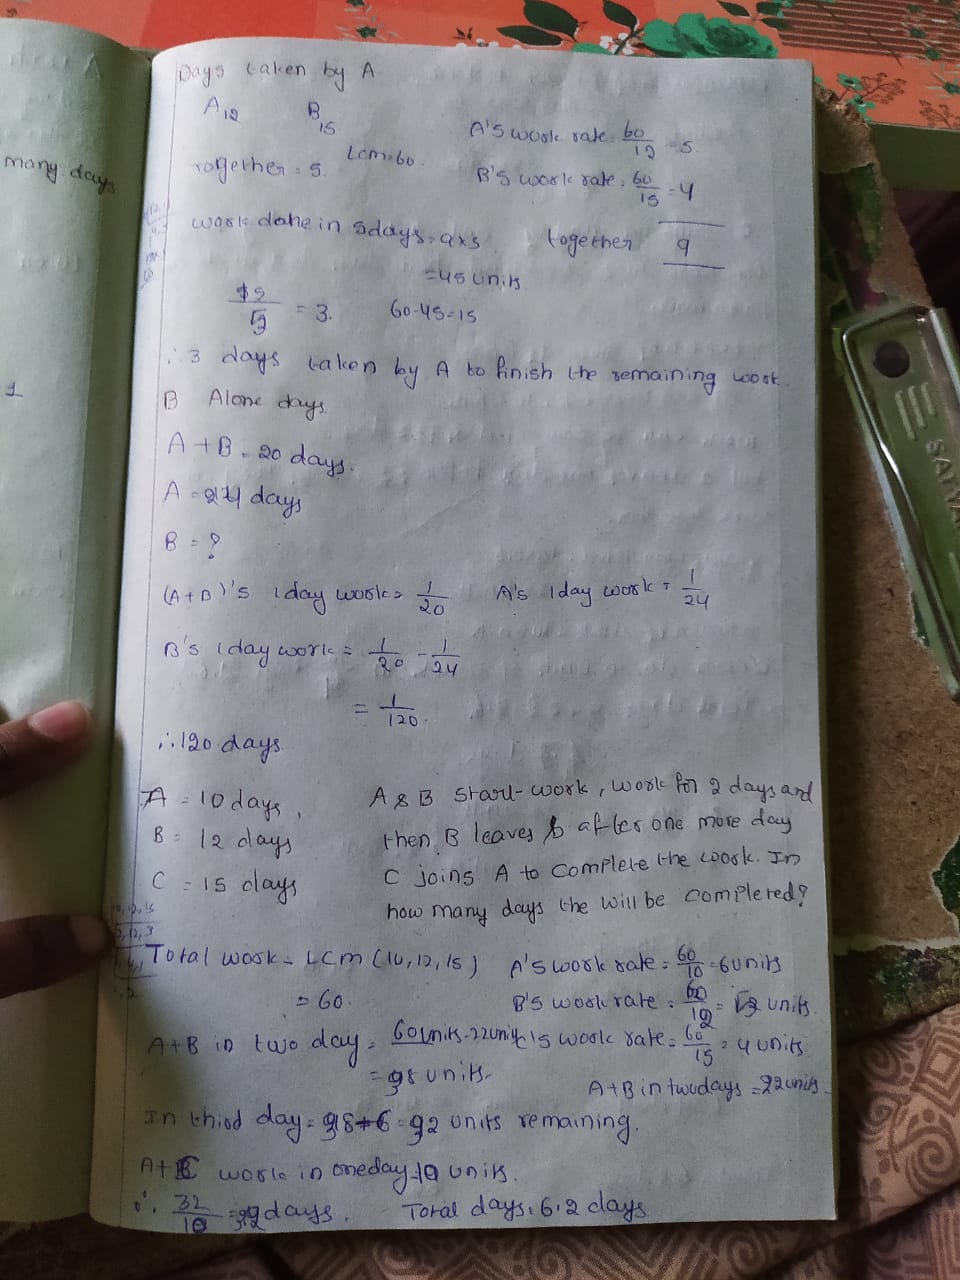 many days
1
Days taken by A
A 12 B 15
A's work rate = 60/12 = 5
Together = 5. LCM = 60
B's work rate = 60/15 = 4
work done in 5 days = 9x5 together 9
= 45 units
15/5 = 3. 60-45=15
∴ 3 days taken by A to finish the remaining work.
B Alone days
A + B = 20 days.
A = 24 days
B = ?
(A+B)'s 1 day work = 1/20 A's 1 day work = 1/24
B's 1 day work = 1/20 - 1/24
= 1/120.
∴ 120 days
A = 10 days,
B = 12 days
C = 15 days
A & B start work, work for 2 days and
then B leaves & after one more day
C joins A to complete the work. In
how many days the will be completed?
10, 12, 15
Total work = LCM (10, 12, 15) A's work rate = 60/10 = 6 units
= 60. B's work rate = 60/12 = 5 units.
A+B in two day = 60 units - 22 units C's work rate = 60/15 = 4 units
= 38 units A+B in two days = 22 units
In third day = 38-6 = 32 units remaining.
A+C work in one day = 10 units.
∴ 32/10 = 3.2 days. Total days = 6.2 days
SATYA